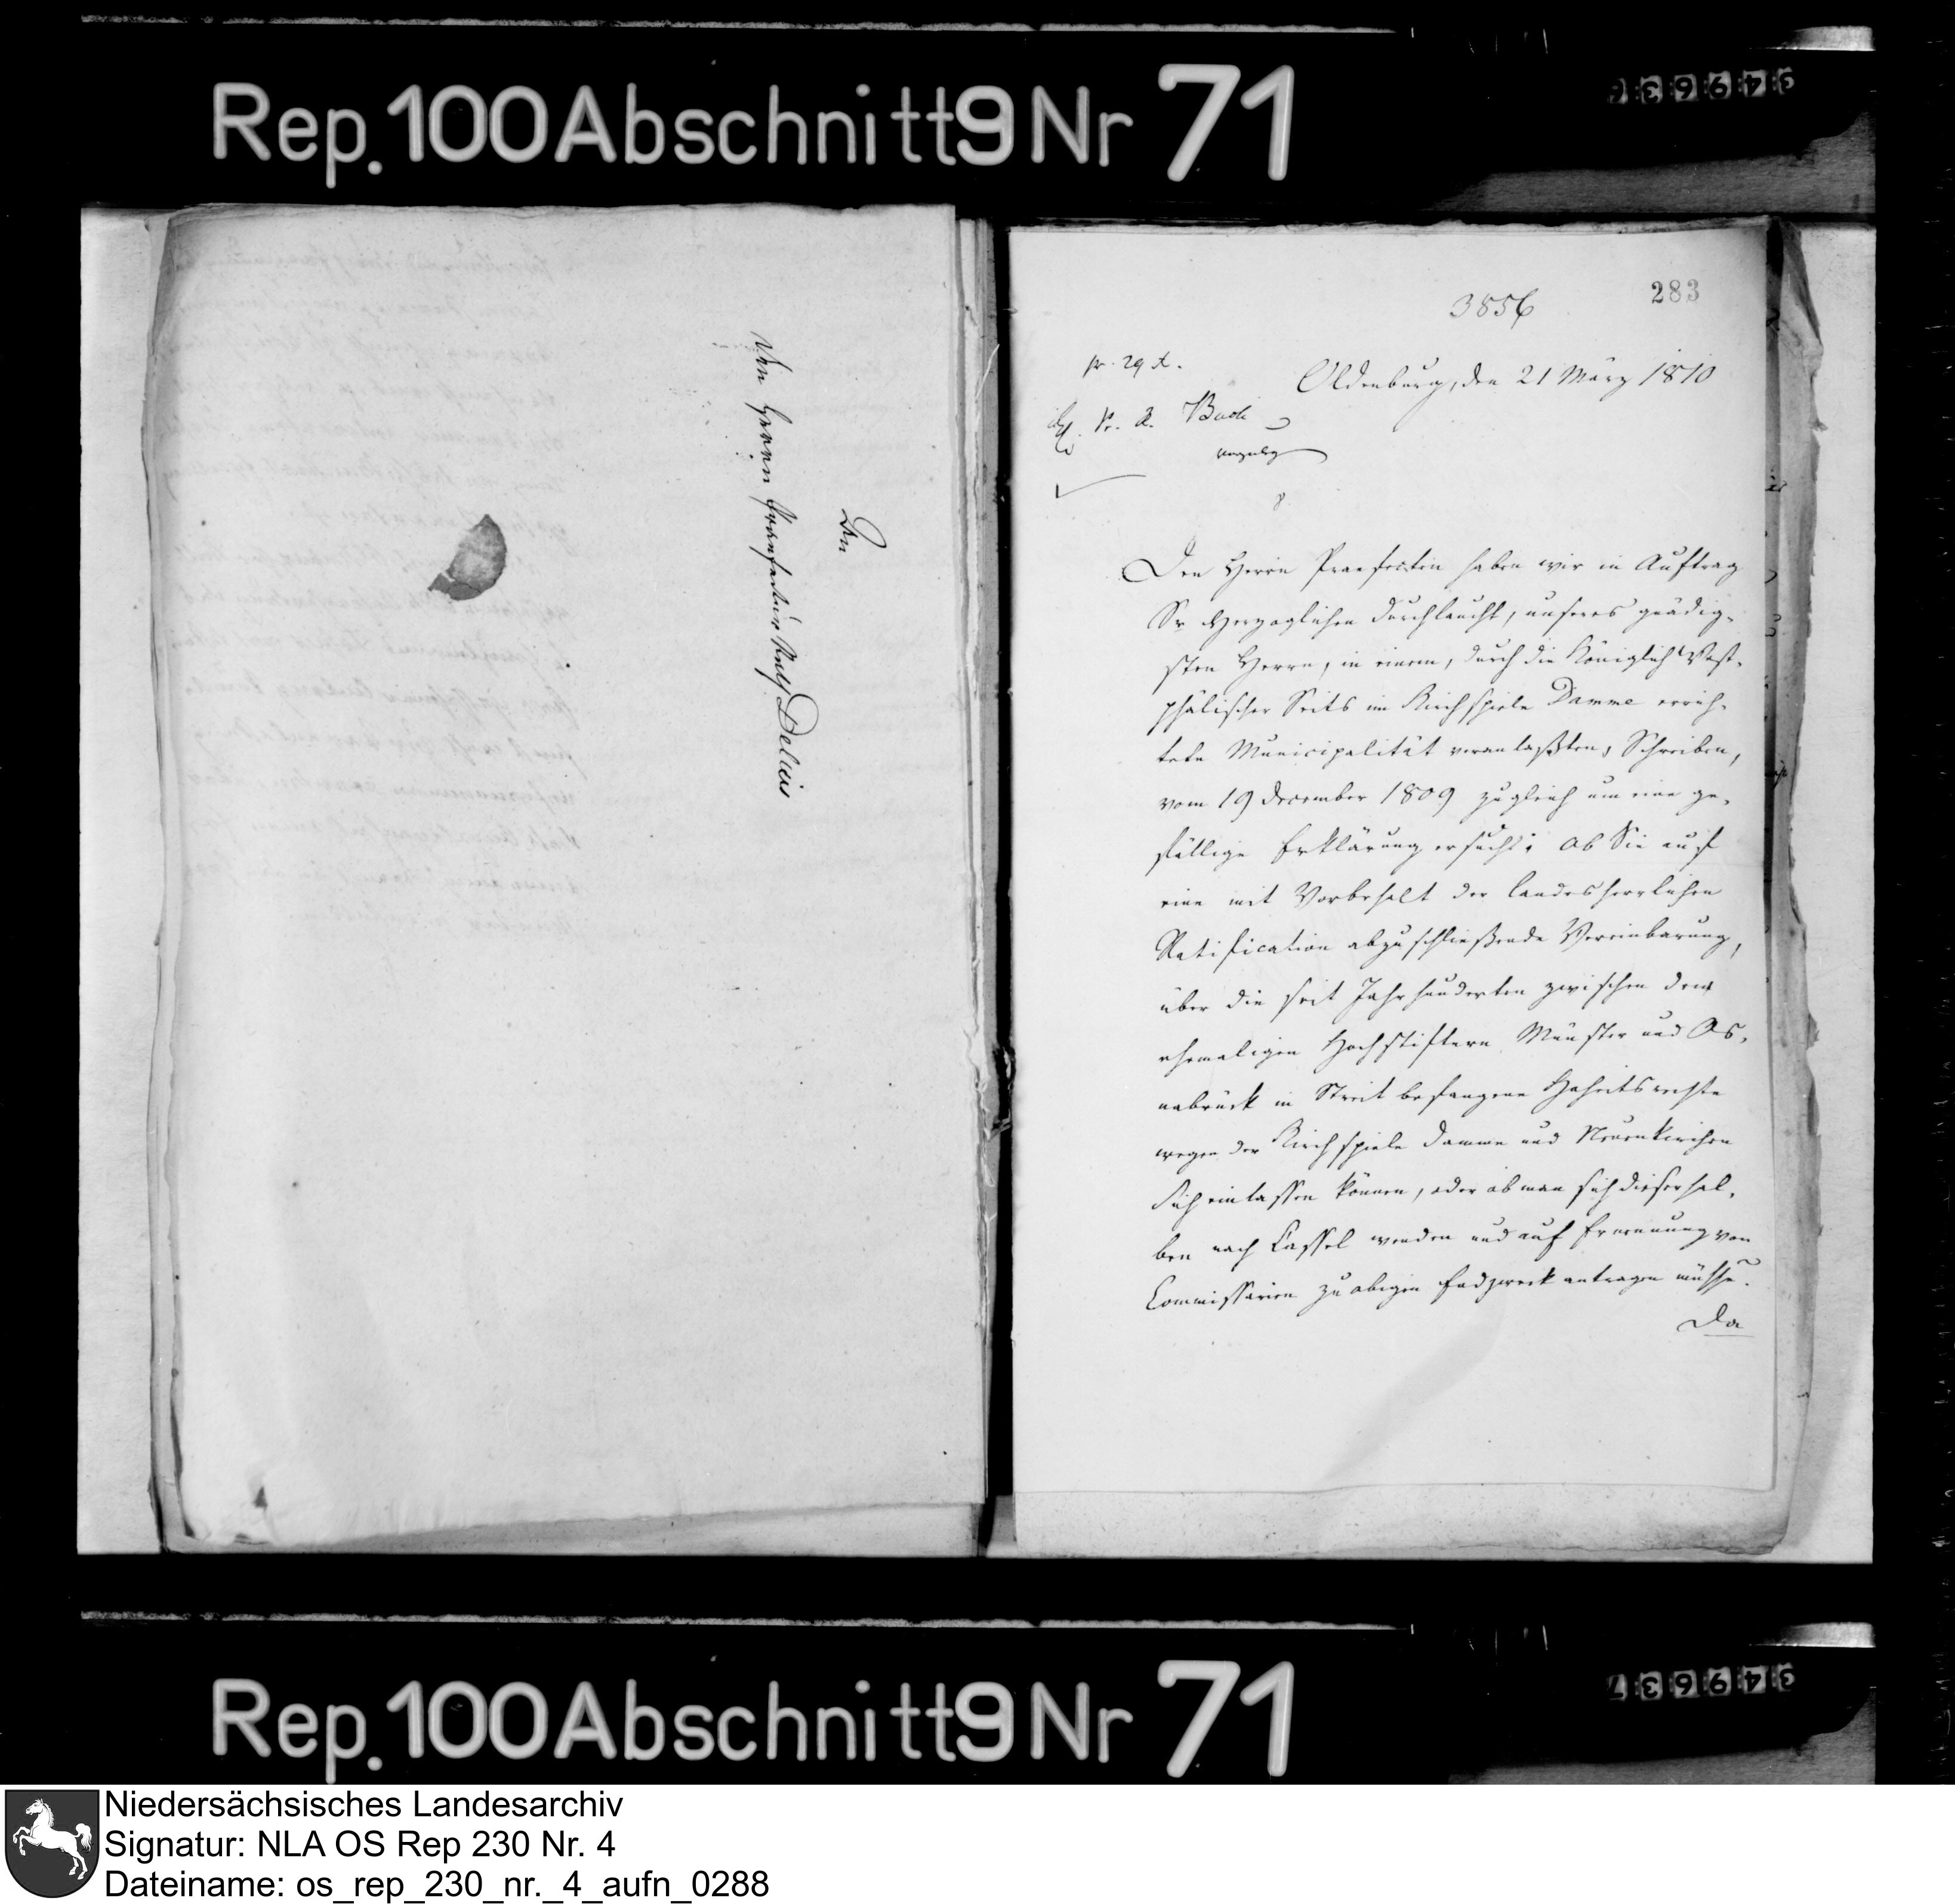 Rep. 100 Abschnitt 9 Nr 71
349636
An
den Herrn Praefectur Rath Delius
283
3856
pr. 29 d.
Oldenburg, den 21 März 1810
Pr. R. Buch
Den Herrn Praefecten haben wir in Auftrag
Sr Herzoglichen Durchlaucht, unseres gnädig-
sten Herrn, in einem, durch die Königlich West-
phälischer Seits im Kirchspiele Damme errich-
tete Municipalität veranlaßten, Schreiben,
vom 19 December 1809 zugleich um eine ge-
fällige Erklärung ersucht: ob Sie auf
eine mit Vorbehalt der landesherrlichen
Ratification abzuschließende Vereinbarung,
über die seit Jahrhunderten zwischen den
ehemaligen Hochstiftern Münster und Os-
nabrück in Streit befangene Hoheitsrechte
wegen der Kirchspiele Damme und Neuenkirchen
sich einlassen können, oder ob man sich dieserhal-
ben nach Cassel wenden und auf Ernennung von
Commissarien zu obigem Endzweck antragen müsse.
Da
Rep. 100 Abschnitt 9 Nr 71
349637
Niedersächsisches Landesarchiv
Signatur: NLA OS Rep 230 Nr. 4
Dateiname: os_rep_230_nr._4_aufn_0288